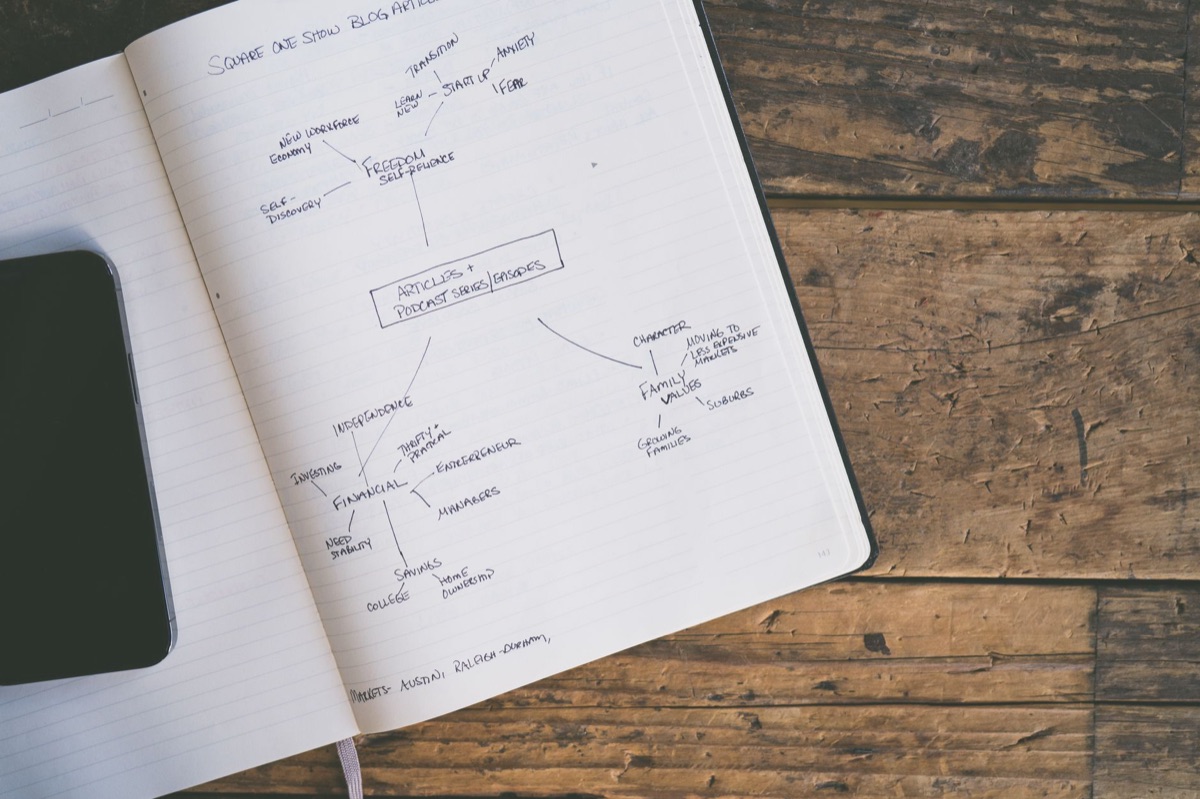 SQUARE ONE SHOW BLOG
TRANSITION
ANXIETY
START UP
FEAR
LEARN
NEW
NEW WORKFORCE
ECONOMY
FREEDOM
SELF-RELIENCE
SELF-
DISCOVERY
ARTICLES +
PODCAST SERIES/EPISODES
CHARACTER
MOVING TO
LESS EXPENSIVE
MARKETS
FAMILY
VALUES
SUBURBS
GROWING
FAMILIES
INDEPENDENCE
THRIFTY +
PRATICAL
INVESTING
ENTREPRENEUR
FINANCIAL
MANAGERS
NEED
STABILITY
SAVINGS
HOME
OWNERSHIP
COLLEGE
MARKETS- AUSTIN, RALEIGH-DURHAM,